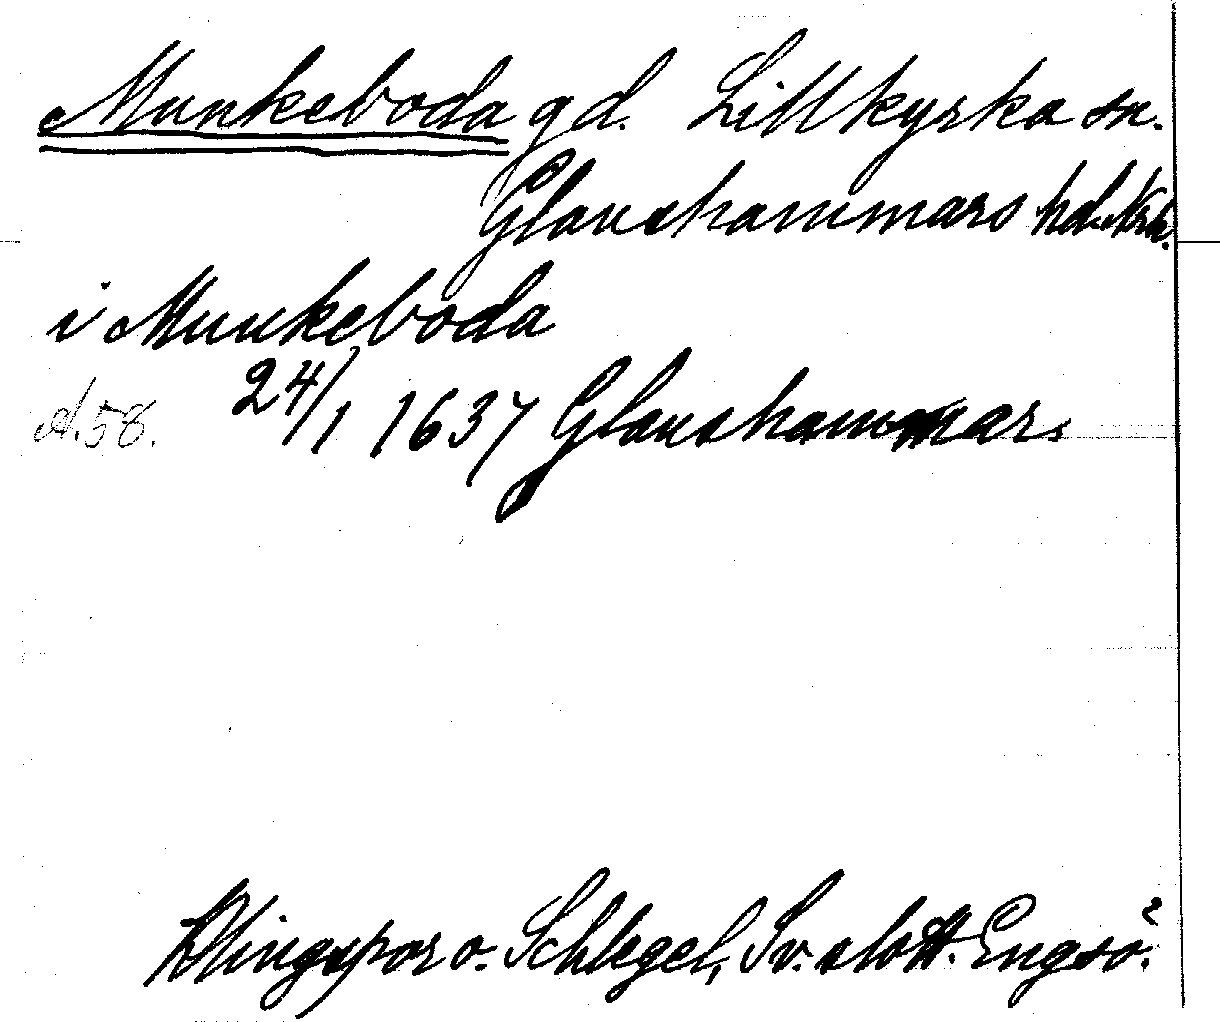 Munkeboda gd. Lillkyrka sn.
Glanshammars hd. Nrk.
i Munkeboda
A.58. 24/1 1637 Glanshammars
Klingspor o. Schlegel, Sv. slott. Engsö.